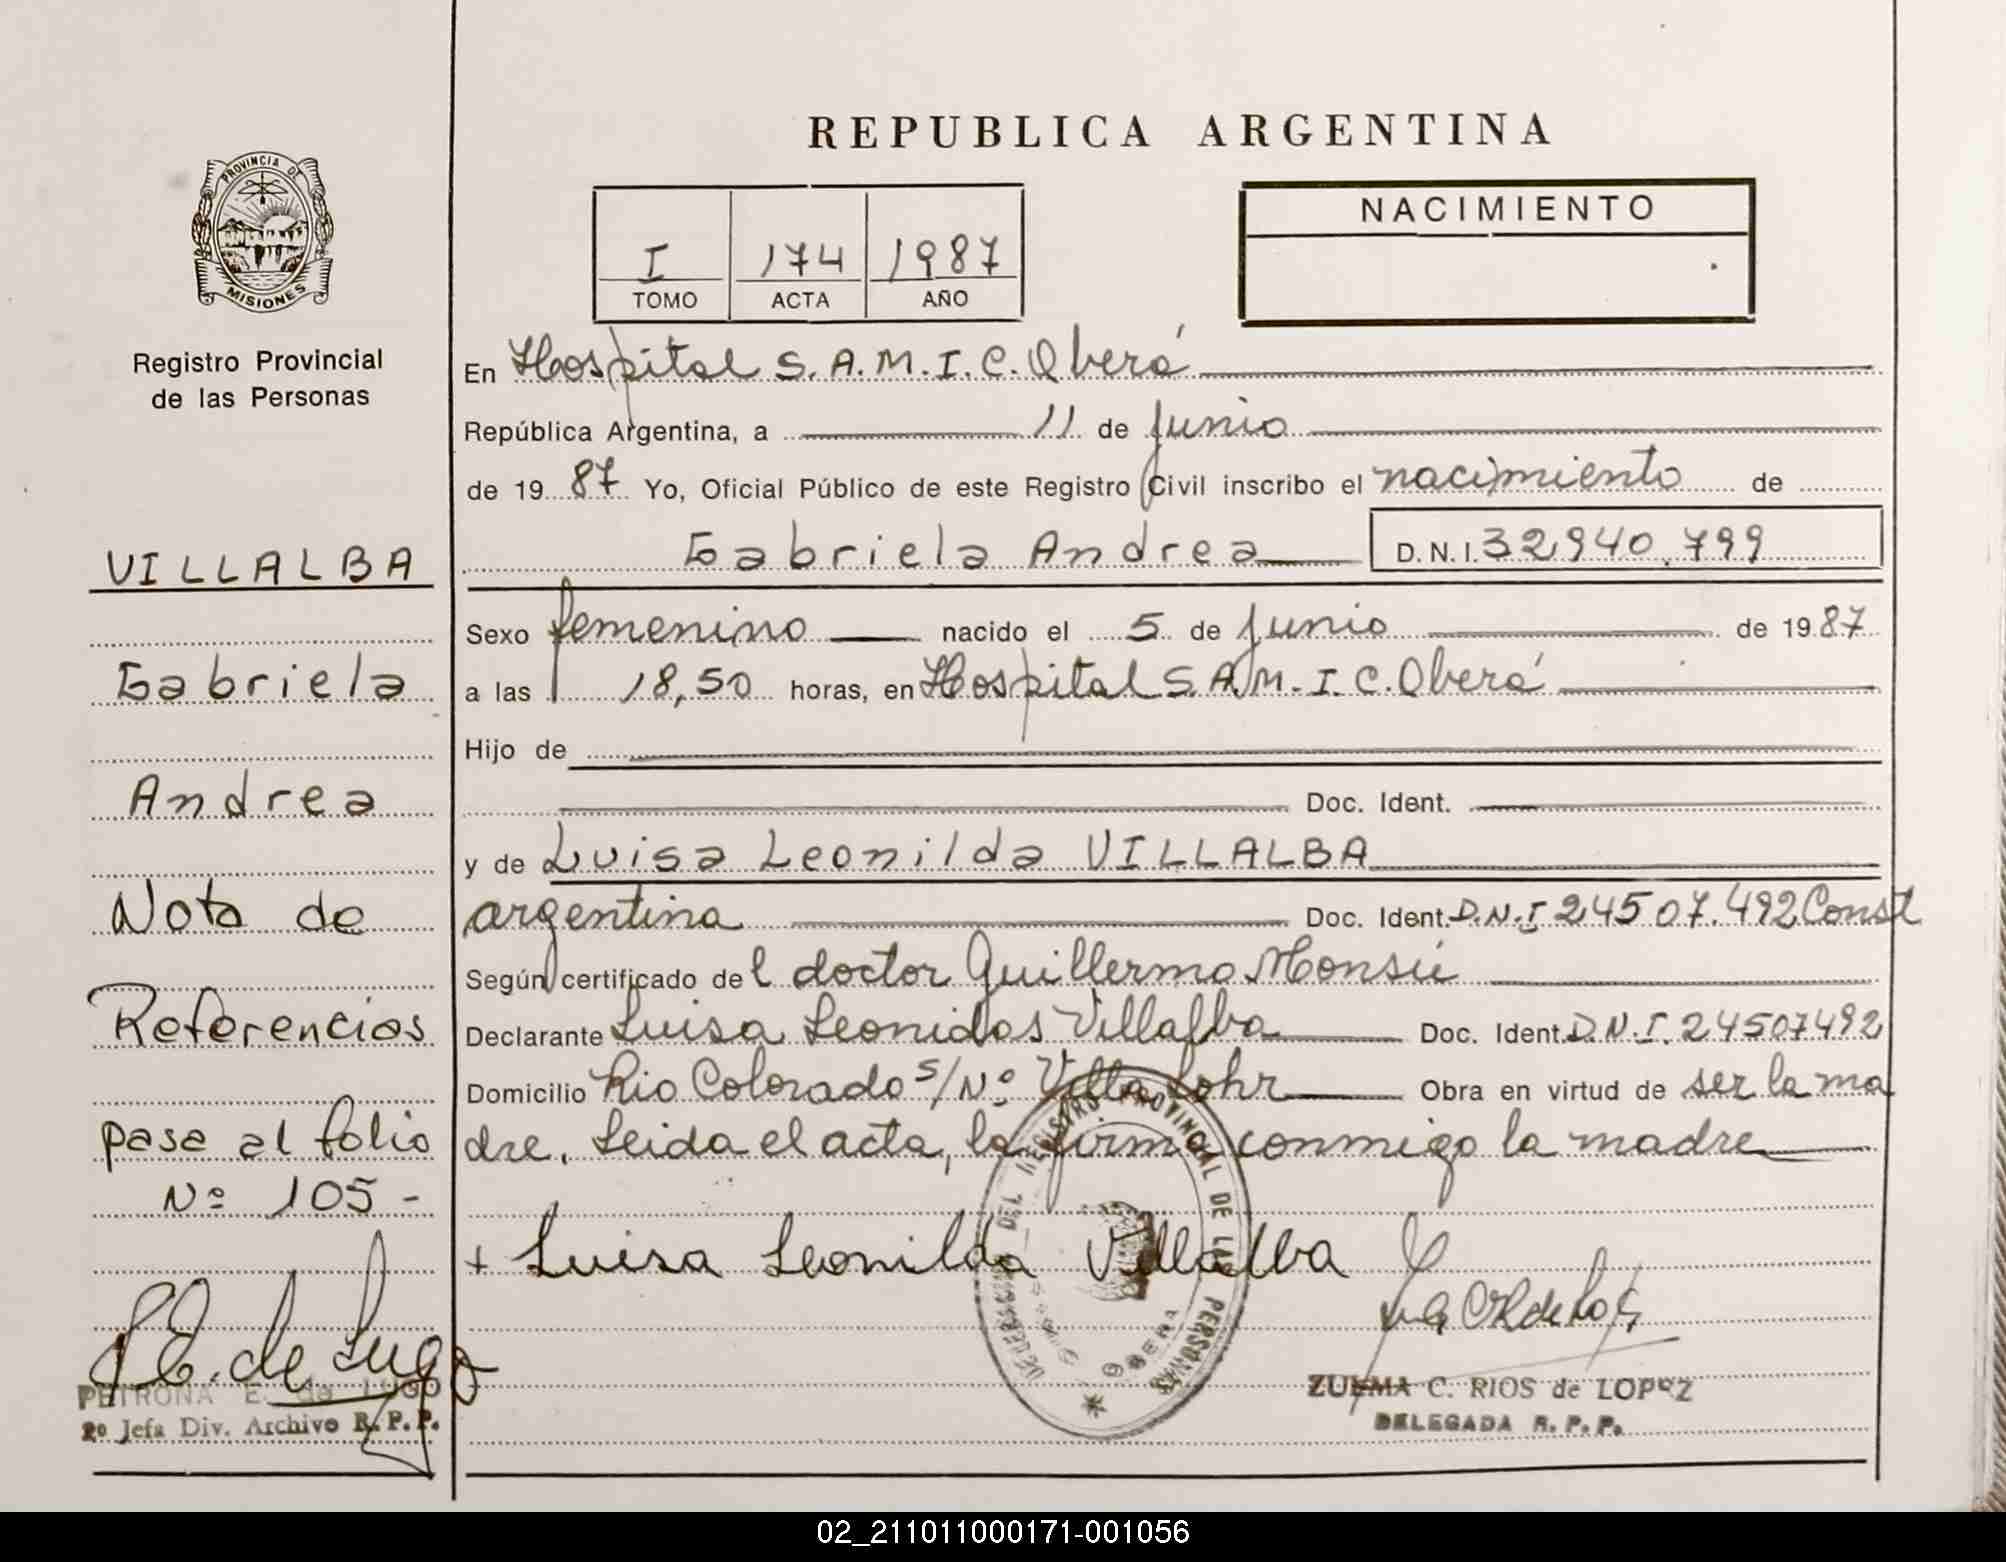 REPUBLICA ARGENTINA
PROVINCIA DE
MISIONES
Registro Provincial
de las Personas
I 174 1987
TOMO ACTA AÑO
NACIMIENTO
En Hospital S.A.M.I.C. Oberá
República Argentina, a 11 de Junio
de 1987 Yo, Oficial Público de este Registro Civil inscribo el nacimiento de
Gabriela Andrea D.N.I. 32940.799
Sexo femenino nacido el 5 de junio de 1987
a las 18,50 horas, en Hospital S.A.M.I.C. Oberá
Hijo de
Doc. Ident.
y de Luisa Leonilda VILLALBA
argentina Doc. Ident. D.N.I 24507.492 Const
Según certificado del doctor Guillermo Monsú
Declarante Luisa Leonidas Villalba Doc. Ident. D.N.I. 24507492
Domicilio Rio Colorado s/Nº Villa Lohr Obra en virtud de ser la ma
dre. Leida el acta, la firma conmigo la madre
+ Luisa Leonilda Villalba
DEL REGISTRO PROVINCIAL DE LAS PERSONAS
OBERA
ZULEMA C. RIOS de LOPEZ
DELEGADA R.P.P.
VILLALBA
Gabriela
Andrea
Nota de
Referencias
pasa al folio
Nº 105-
P.E. de Lugo
PETRONA E. de LUGO
2º Jefa Div. Archivo R.P.P.
02_211011000171-001056